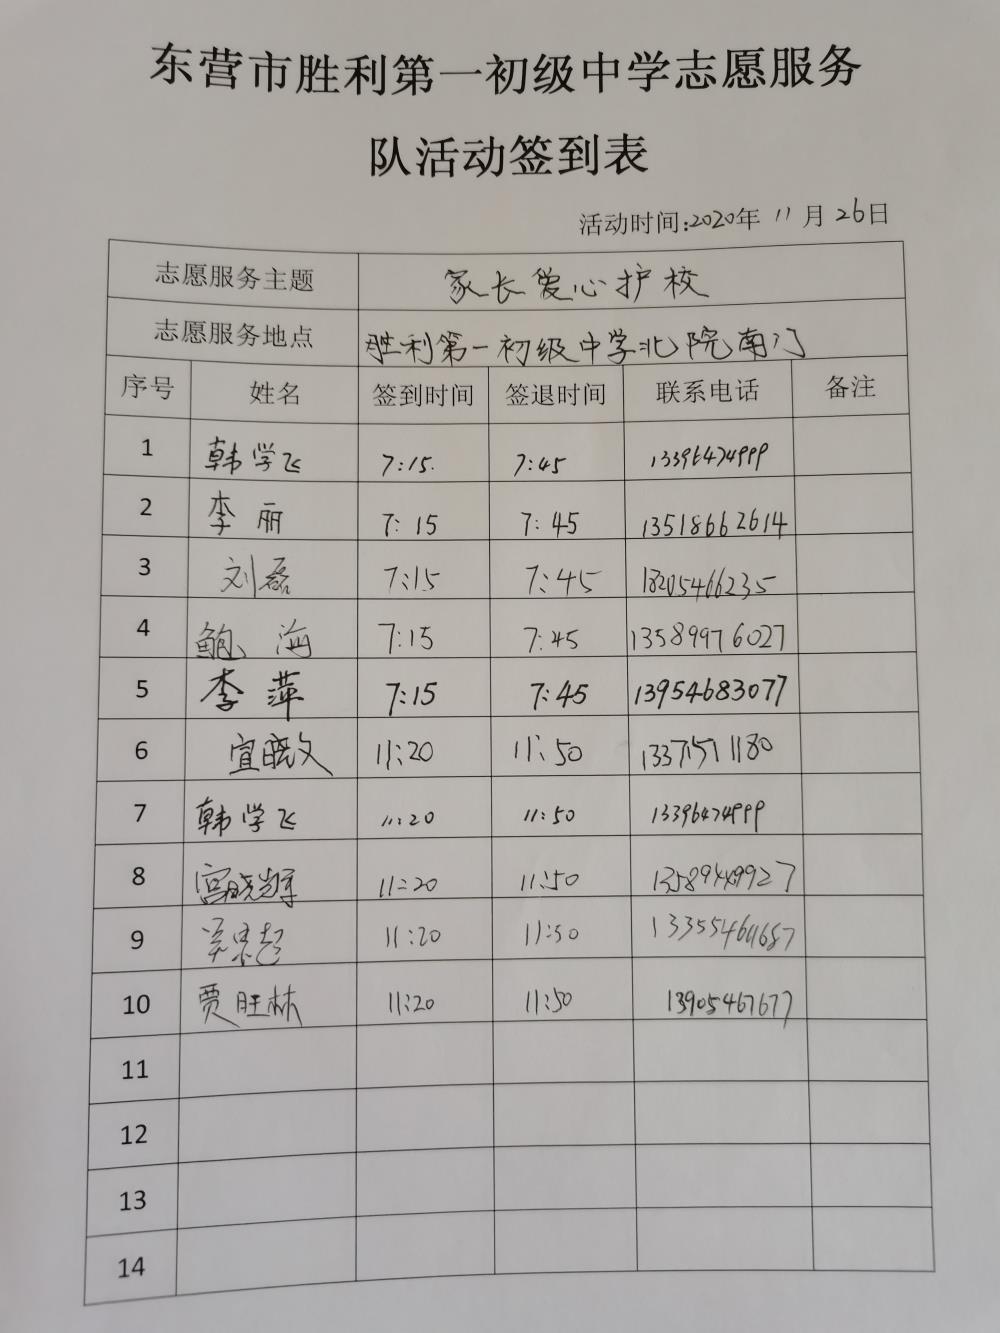 东营市胜利第一初级中学志愿服务
队活动签到表
活动时间:2020年 11 月 26日
志愿服务主题 家长爱心护校
志愿服务地点 胜利第一初级中学北院南门
序号 姓名 签到时间 签退时间 联系电话 备注
1 韩学飞 7:15. 7:45 13396474999
2 李丽 7:15 7:45 13518662614
3 刘磊 7:15 7:45 18205466235
4 鲍海 7:15 7:45 13589976027
5 李萍 7:15 7:45 13954683077
6 宜晓文 11:20 11:50 13371571180
7 韩学飞 11:20 11:50 13396474999
8 宫晓辉 11:20 11:50
9 11:20 11:50
10 贾旺林 11:20 11:50 13905467677
11
12
13
14